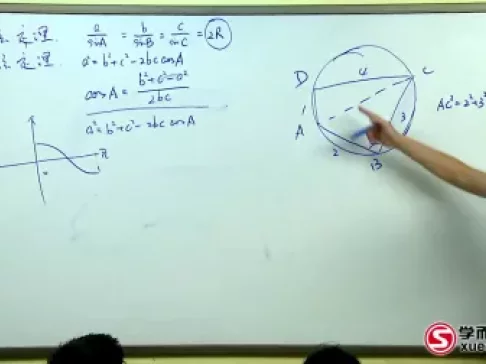 定理. a/sinA = b/sinB = c/sinC = 2R
定理. a²=b²+c²-2bc cosA
cosA = b²+c²-a²/2bc
a²=b²+c²-2bc cosA
π
D 4 C
1
A
3
2
B
AC²=2²+3²
S 学而
xue